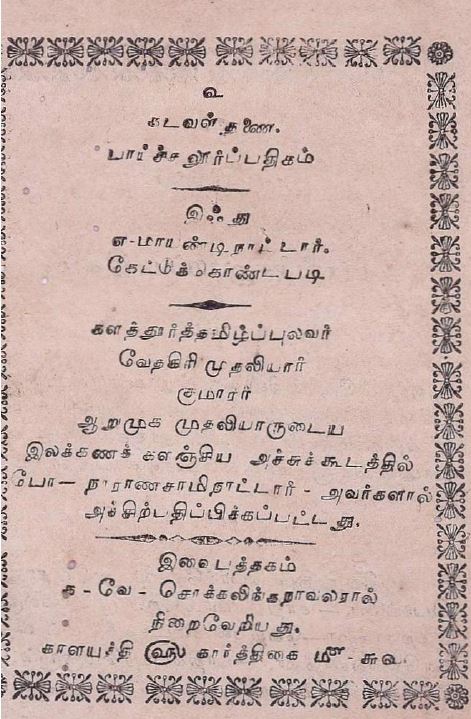 உ
கடவள் தணை.
பாய்ச்சலூர்ப்பதிகம்
இஃது
எ-மாயண்டிநாட்டார்.
கேட்டுக்கொண்டபடி
களத்தூர்த்தமிழ்ப்புலவர்
வேதகிரி முதலியார்
குமாரர்
ஆறுமுக முதலியாருடைய
இலக்கணக் களஞ்சிய அச்சுக்கூடத்தில்
போ— நாராணசாமிநாட்டார் - அவர்களால்
அச்சிற்பதிப்பிக்கப்பட்டது.
இவைபத்தகம்
க - வே - சொக்கலிங்கநாவலரால்
நிறைவேறியது.
காளயுத்தி ௵ கார்த்திகை ௴ - ௬௨